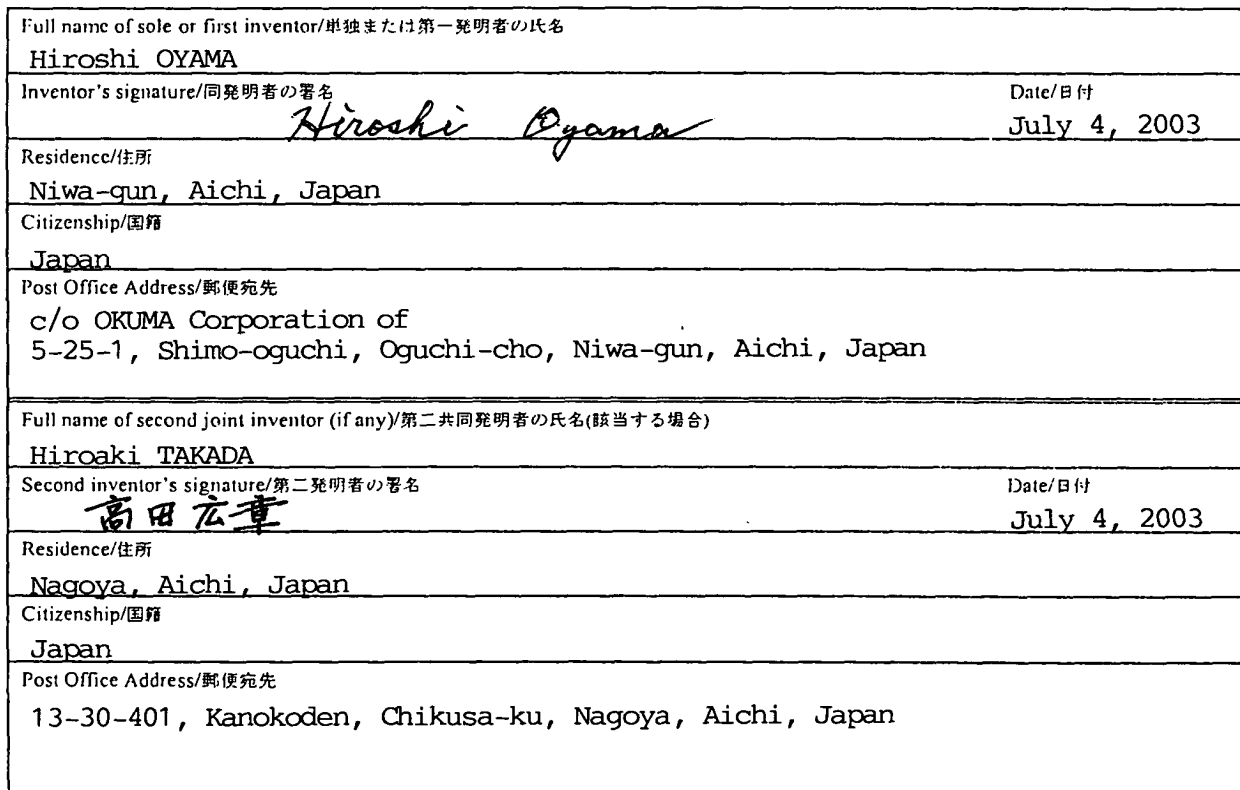 Full name of sole or first inventor/単独または第一発明者の氏名
Hiroshi OYAMA
Inventor's signature/同発明者の署名 Date/日付
Hiroshi Oyama July 4, 2003
Residence/住所
Niwa-gun, Aichi, Japan
Citizenship/国籍
Japan
Post Office Address/郵便宛先
c/o OKUMA Corporation of
5-25-1, Shimo-oguchi, Oguchi-cho, Niwa-gun, Aichi, Japan
Full name of second joint inventor (if any)/第二共同発明者の氏名(該当する場合)
Hiroaki TAKADA
Second inventor's signature/第二発明者の署名 Date/日付
高田広章 July 4, 2003
Residence/住所
Nagoya, Aichi, Japan
Citizenship/国籍
Japan
Post Office Address/郵便宛先
13-30-401, Kanokoden, Chikusa-ku, Nagoya, Aichi, Japan